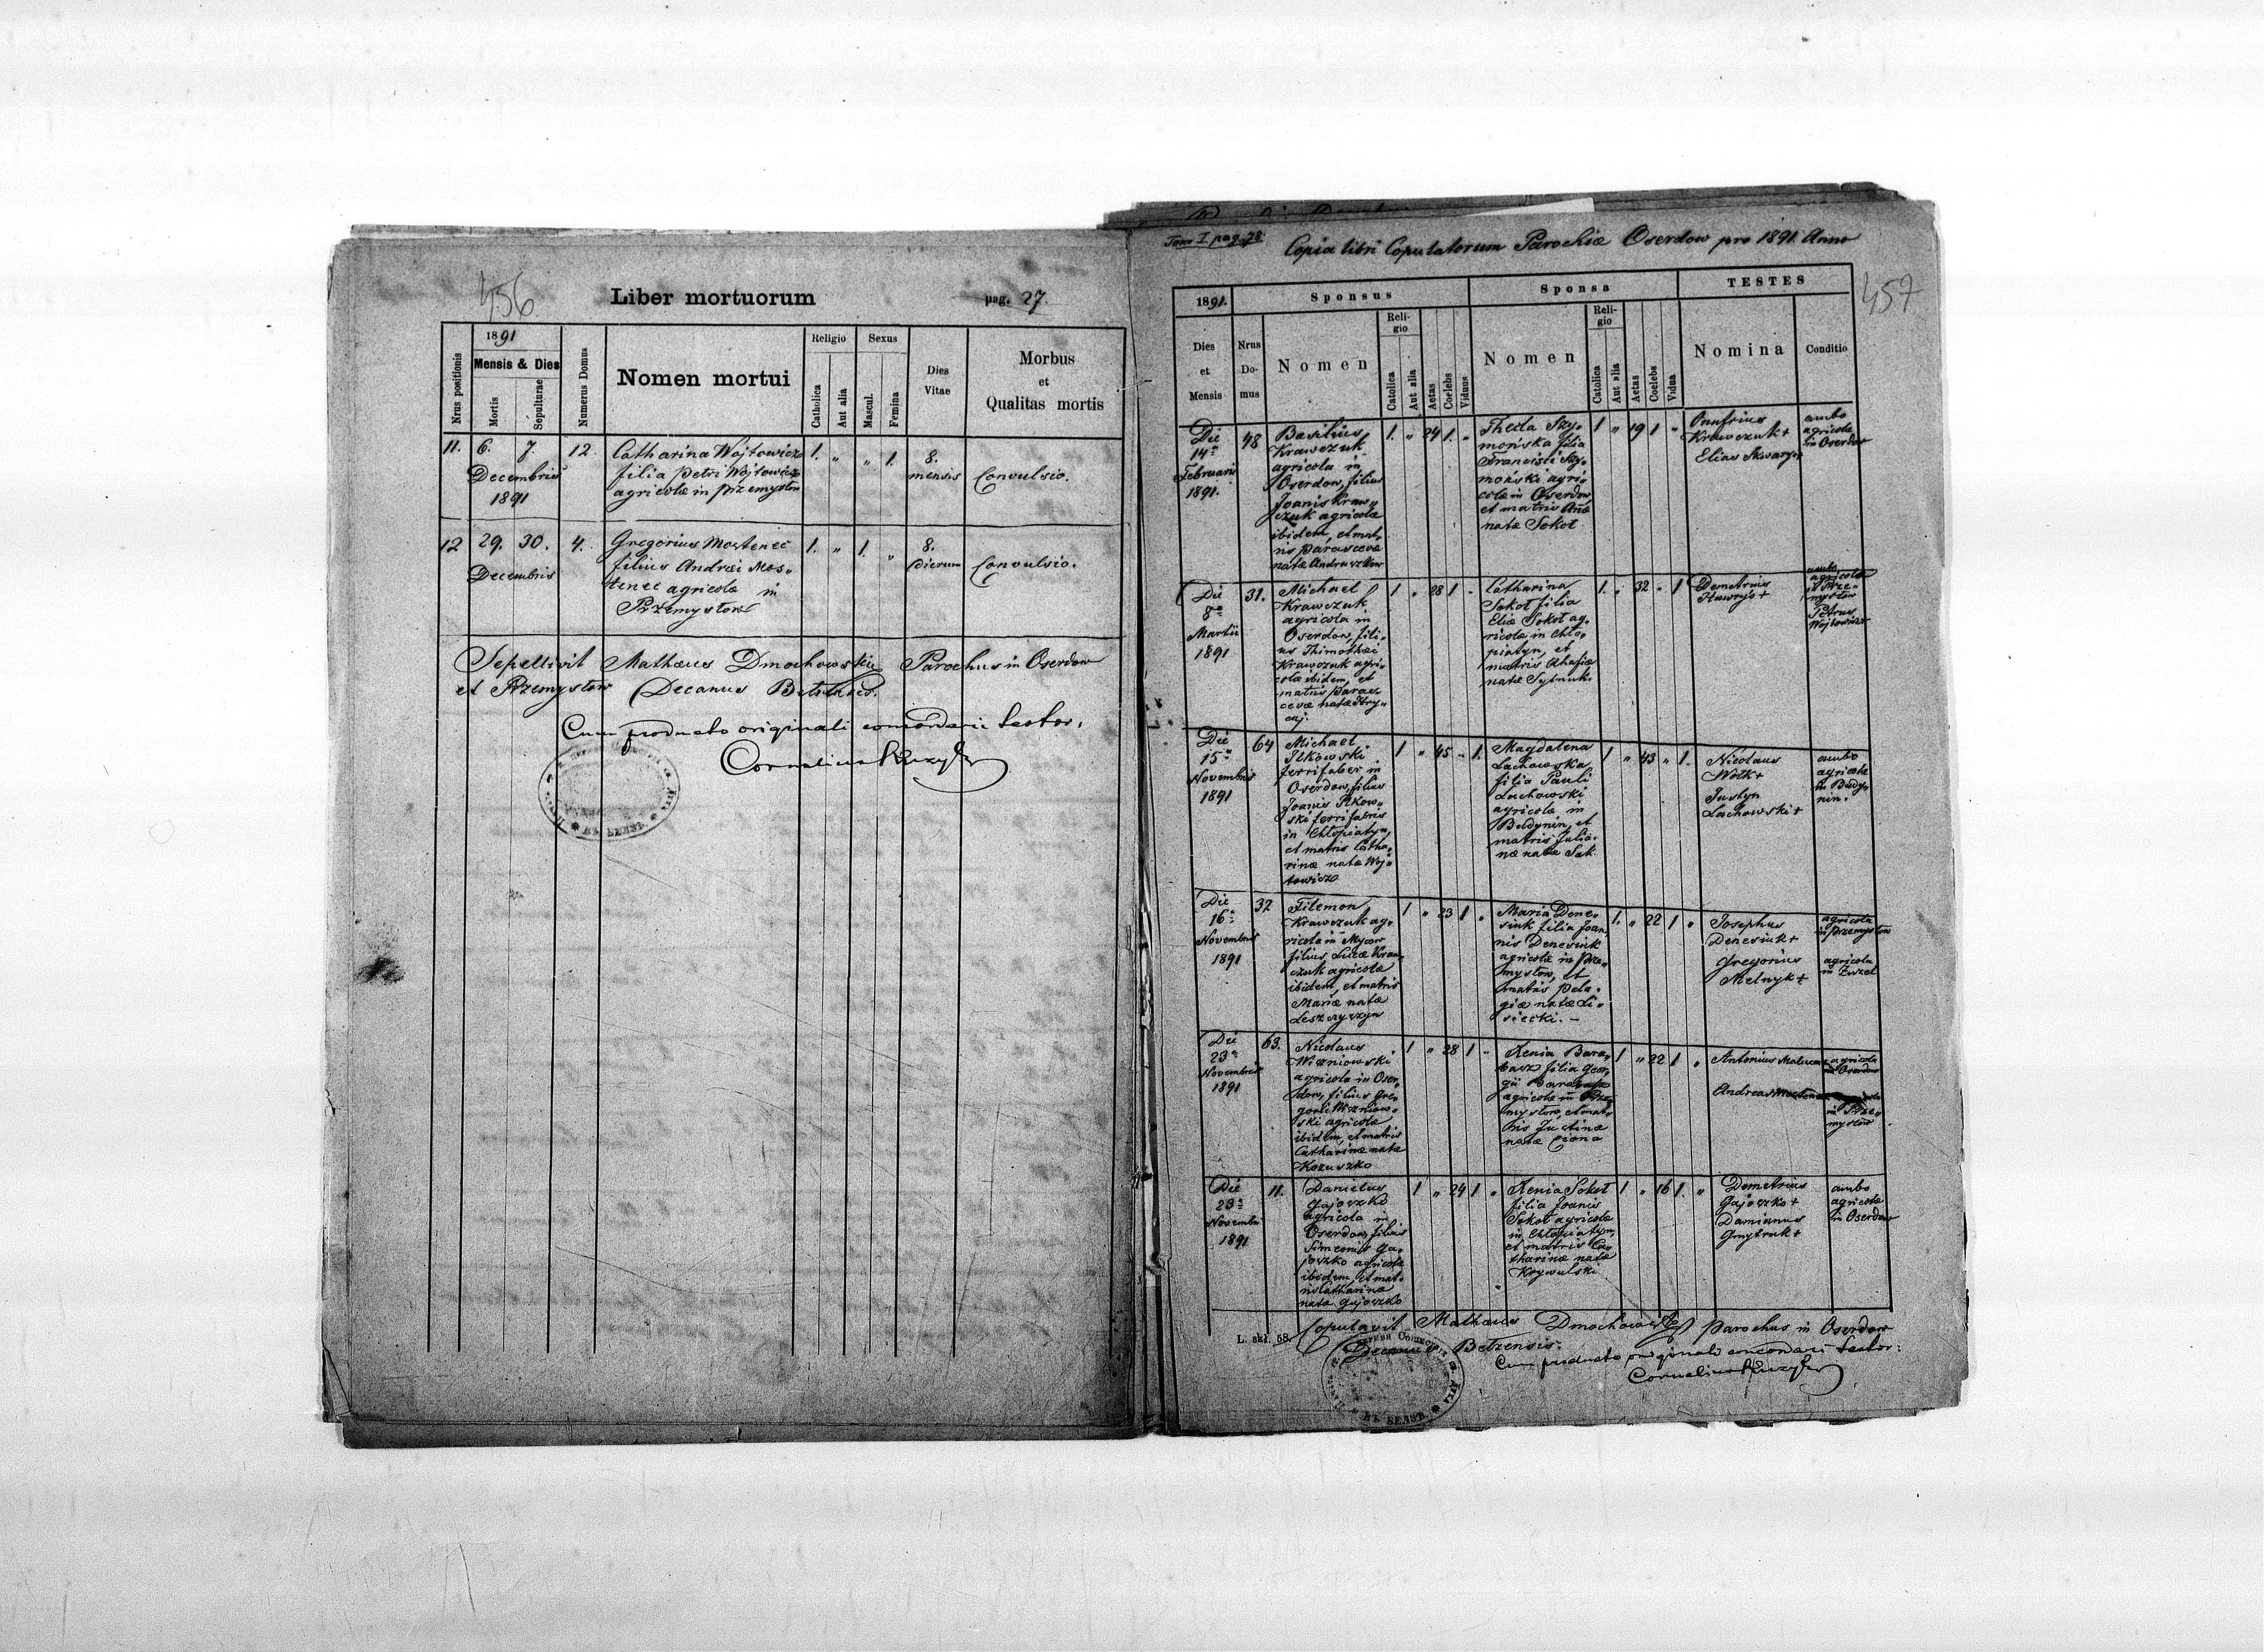 456
Liber mortuorum
pag. 27
Nrus positionis
1891
Mensis & Dies
Mortis
Sepulturae
Numerus Domus
Nomen mortui
Religio
Catholica
Aut alia
Sexus
Mascul.
Femina
Dies
Vitae
Morbus
et
Qualitas mortis
11. 6. 7. 12 Catharina Wojtowicz 1. " " 1. 8.
Decembris filia Petri Wojtowicz mensis Convulsio.
1891 agricolæ in Przemysłow
12 29. 30. 4. Gregorius Mostenec 1. " 1. " 8.
Decembris filius Andreæ Mos- dierum Convulsio.
tenec agricolæ in
Przemysłow
Sepelivit Mathæus Dmochowski Parochus in Oserdow
et Przemysłow Decanus
Cum producto originali concordare testor.
Cornelius
ВЪ БЕЛЗѢ
Tom I pag. 78
Copia libri Copulatorum Parochiæ Oserdow pro 1891 Anno
457
1891.
Sponsus
Sponsa
TESTES
Dies
et
Mensis
Nrus
Do-
mus
Nomen
Reli-
gio
Catolica
Aut alia
Aetas
Coelebs
Viduus
Nomen
Reli-
gio
Catolica
Aut alia
Aetas
Coelebs
Vidua
Nomina
Conditio
Die
14a
Februarii
1891.
48
Basilius
Krawczuk
agricola in
Oserdow, filius
Joanis Kraw-
czuk agricolæ
ibidem, et mat-
ris Parascevæ
natæ Andruszkow
1. " 24 1. "
Thecla Szy-
mońska filia
Francisci Szy-
moński agri-
colæ in Oserdow
et matris Annæ
natæ Sokoł
1 " 19 1 "
Onufrius
Krawczuk +
Elias Skwaryn
ambo
agricolæ
in Oserdow
Die
8a
Martii
1891
31.
Michael
Krawczuk
agricola in
Oserdow, fili-
us Thimothæi
Krawczuk agri-
colæ ibidem, et
matris Paras-
cevæ natæ Hry-
caj.
1 " 28 1 "
Catharina
Sokoł filia
Eliæ Sokoł ag-
ricolæ in Chło-
piatyn, et
matris
natæ
1. " 32 " 1
Demetrius
Hawryś +
ambo
agricolæ
in Prze-
mysłow
Petrus
Wojtowicz +
Die
15a
Novembris
1891
64
Michael
Ilkowski
ferrifaber in
Oserdow, filius
Joanis Ilkow-
ski ferrifabris
in Chłopiatyn,
et matris Catha-
rinæ natæ Woj-
towicz
1 " 45 " 1.
Magdalena
Lachowska
filia Pauli
Lachowski
agricolæ in
Budynin, et
matris Julia-
næ natæ Sak.
1 " 43 " 1.
Nicolaus
Wołk +
Justyn
Lachowski +
ambo
agricolæ
in Budy-
nin.
Die
16a
Novembris
1891
32
Filemon
Krawczuk ag-
ricola in Mycow
filius Lucæ Kraw-
czuk agricolæ
ibidem, et matris
Mariæ natæ
Leszczyszyn
1 " 23 1 "
Maria Dene-
siuk filia Joan-
nis Denesiuk
agricolæ in Prze-
mysłow, et
matris Pela-
giæ natæ Li-
siecki. –
1. " 22 1 "
Josephus
Denesiuk +
Gregorius
Melnyk +
agricola
in Przemysłow
agricola
in Żużel
Die
23a
Novembris
1891
63.
Nicolaus
Wiszniowski
agricola in Oser-
dow, filius Gre-
gorii Wiszniow-
ski agricolæ
ibidem, et matris
Catharinæ natæ
Kozuszko
1 " 28 1 "
Xenia Bara-
basz filia Geor-
gii Barabasz
agricolæ in Prze-
mysłow, et mat-
ris Justinæ
natæ Piona
1 " 22 1 "
Antonius
agricola
in Oserdow
Andreas
in Prze-
mysłow
Die
23a
Novembris
1891
11.
Danielus
Gajoszko
agricola in
Oserdow, filius
Simeonis Ga-
joszko agricolæ
ibidem, et mat-
ris Catharinæ
natæ Gajoszko
1 " 24 1 "
Xenia Sokoł
filia Joanis
Sokoł agricolæ
in Chłopiatyn,
et matris Ca-
tharinæ natæ
Krywulski
1 " 16 1. "
Demetrius
Gajoszko +
Damianus
Gmytruk +
ambo
agricolæ
in Oserdow
L. skł. 58.
Copulavit Mathæus Dmochowski Parochus in Oserdow
Decanus Bełzensis.
Cum producto originali concordare testor:
Cornelius
ВЪ БЕЛЗѢ